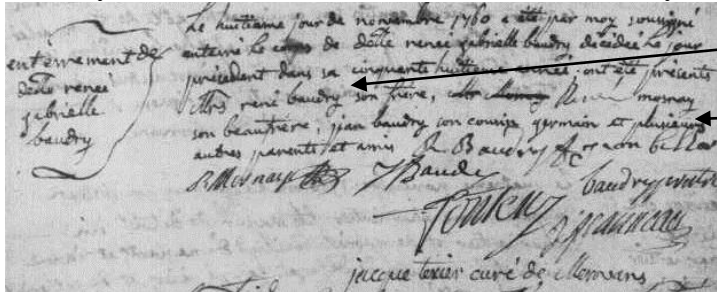 enterrement de
delle renée
gabrielle
baudry
Le huitieme jour de novembre 1760 a été par moy soussigné
enterré le corps de delle renée gabrielle baudry décédée le jour
précédant dans sa cinquante huitieme année. ont été présents
Mrs rené baudry son frère, mosnay
son beaufrère, jean baudry son cousin germain et plusieurs
autres parents et amis R Baudry
RMosnay J Baudry baudry
jacque texier curé de